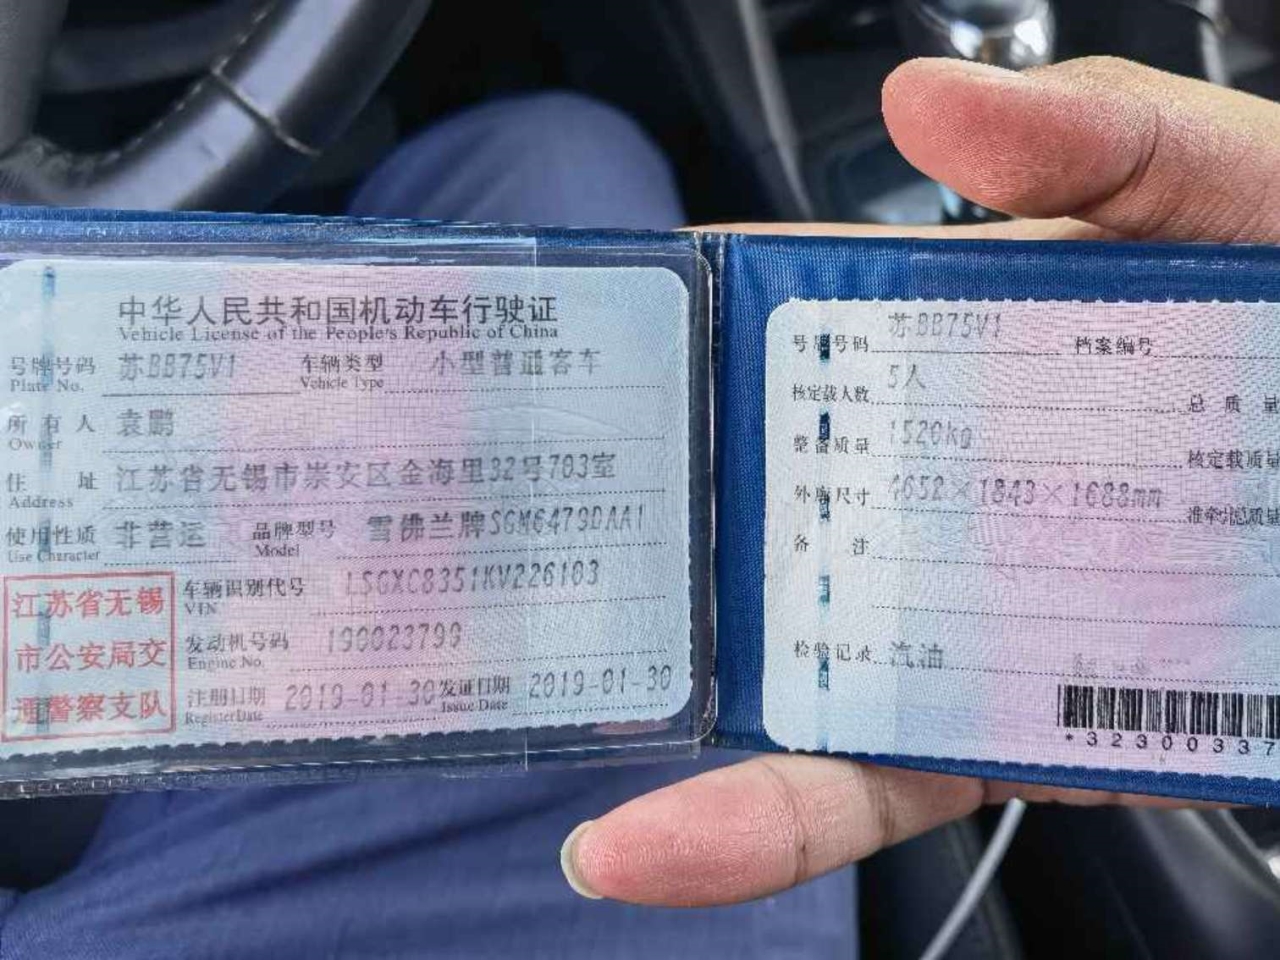 中华人民共和国机动车行驶证
Vehicle License of the People's Republic of China
号牌号码 苏BB75V1 车辆类型 小型普通客车
Plate No. Vehicle Type
所有人 袁鹏
Owner
住址 江苏省无锡市崇安区金海里32号703室
Address
使用性质 非营运 品牌型号 雪佛兰牌SGM6479DAA1
Use Character Model
车辆识别代号 LSGXC8351KV226103
VIN
发动机号码 190023799
Engine No.
注册日期 2019-01-30 发证日期 2019-01-30
Register Date Issue Date
江苏省无锡
市公安局交
通警察支队
号牌号码 苏BB75V1 档案编号
核定载人数 5人 总质量
整备质量 1520kg 核定载质量
外廓尺寸 4652×1843×1688mm 准牵引总质量
备注
检验记录 汽油
*32300337